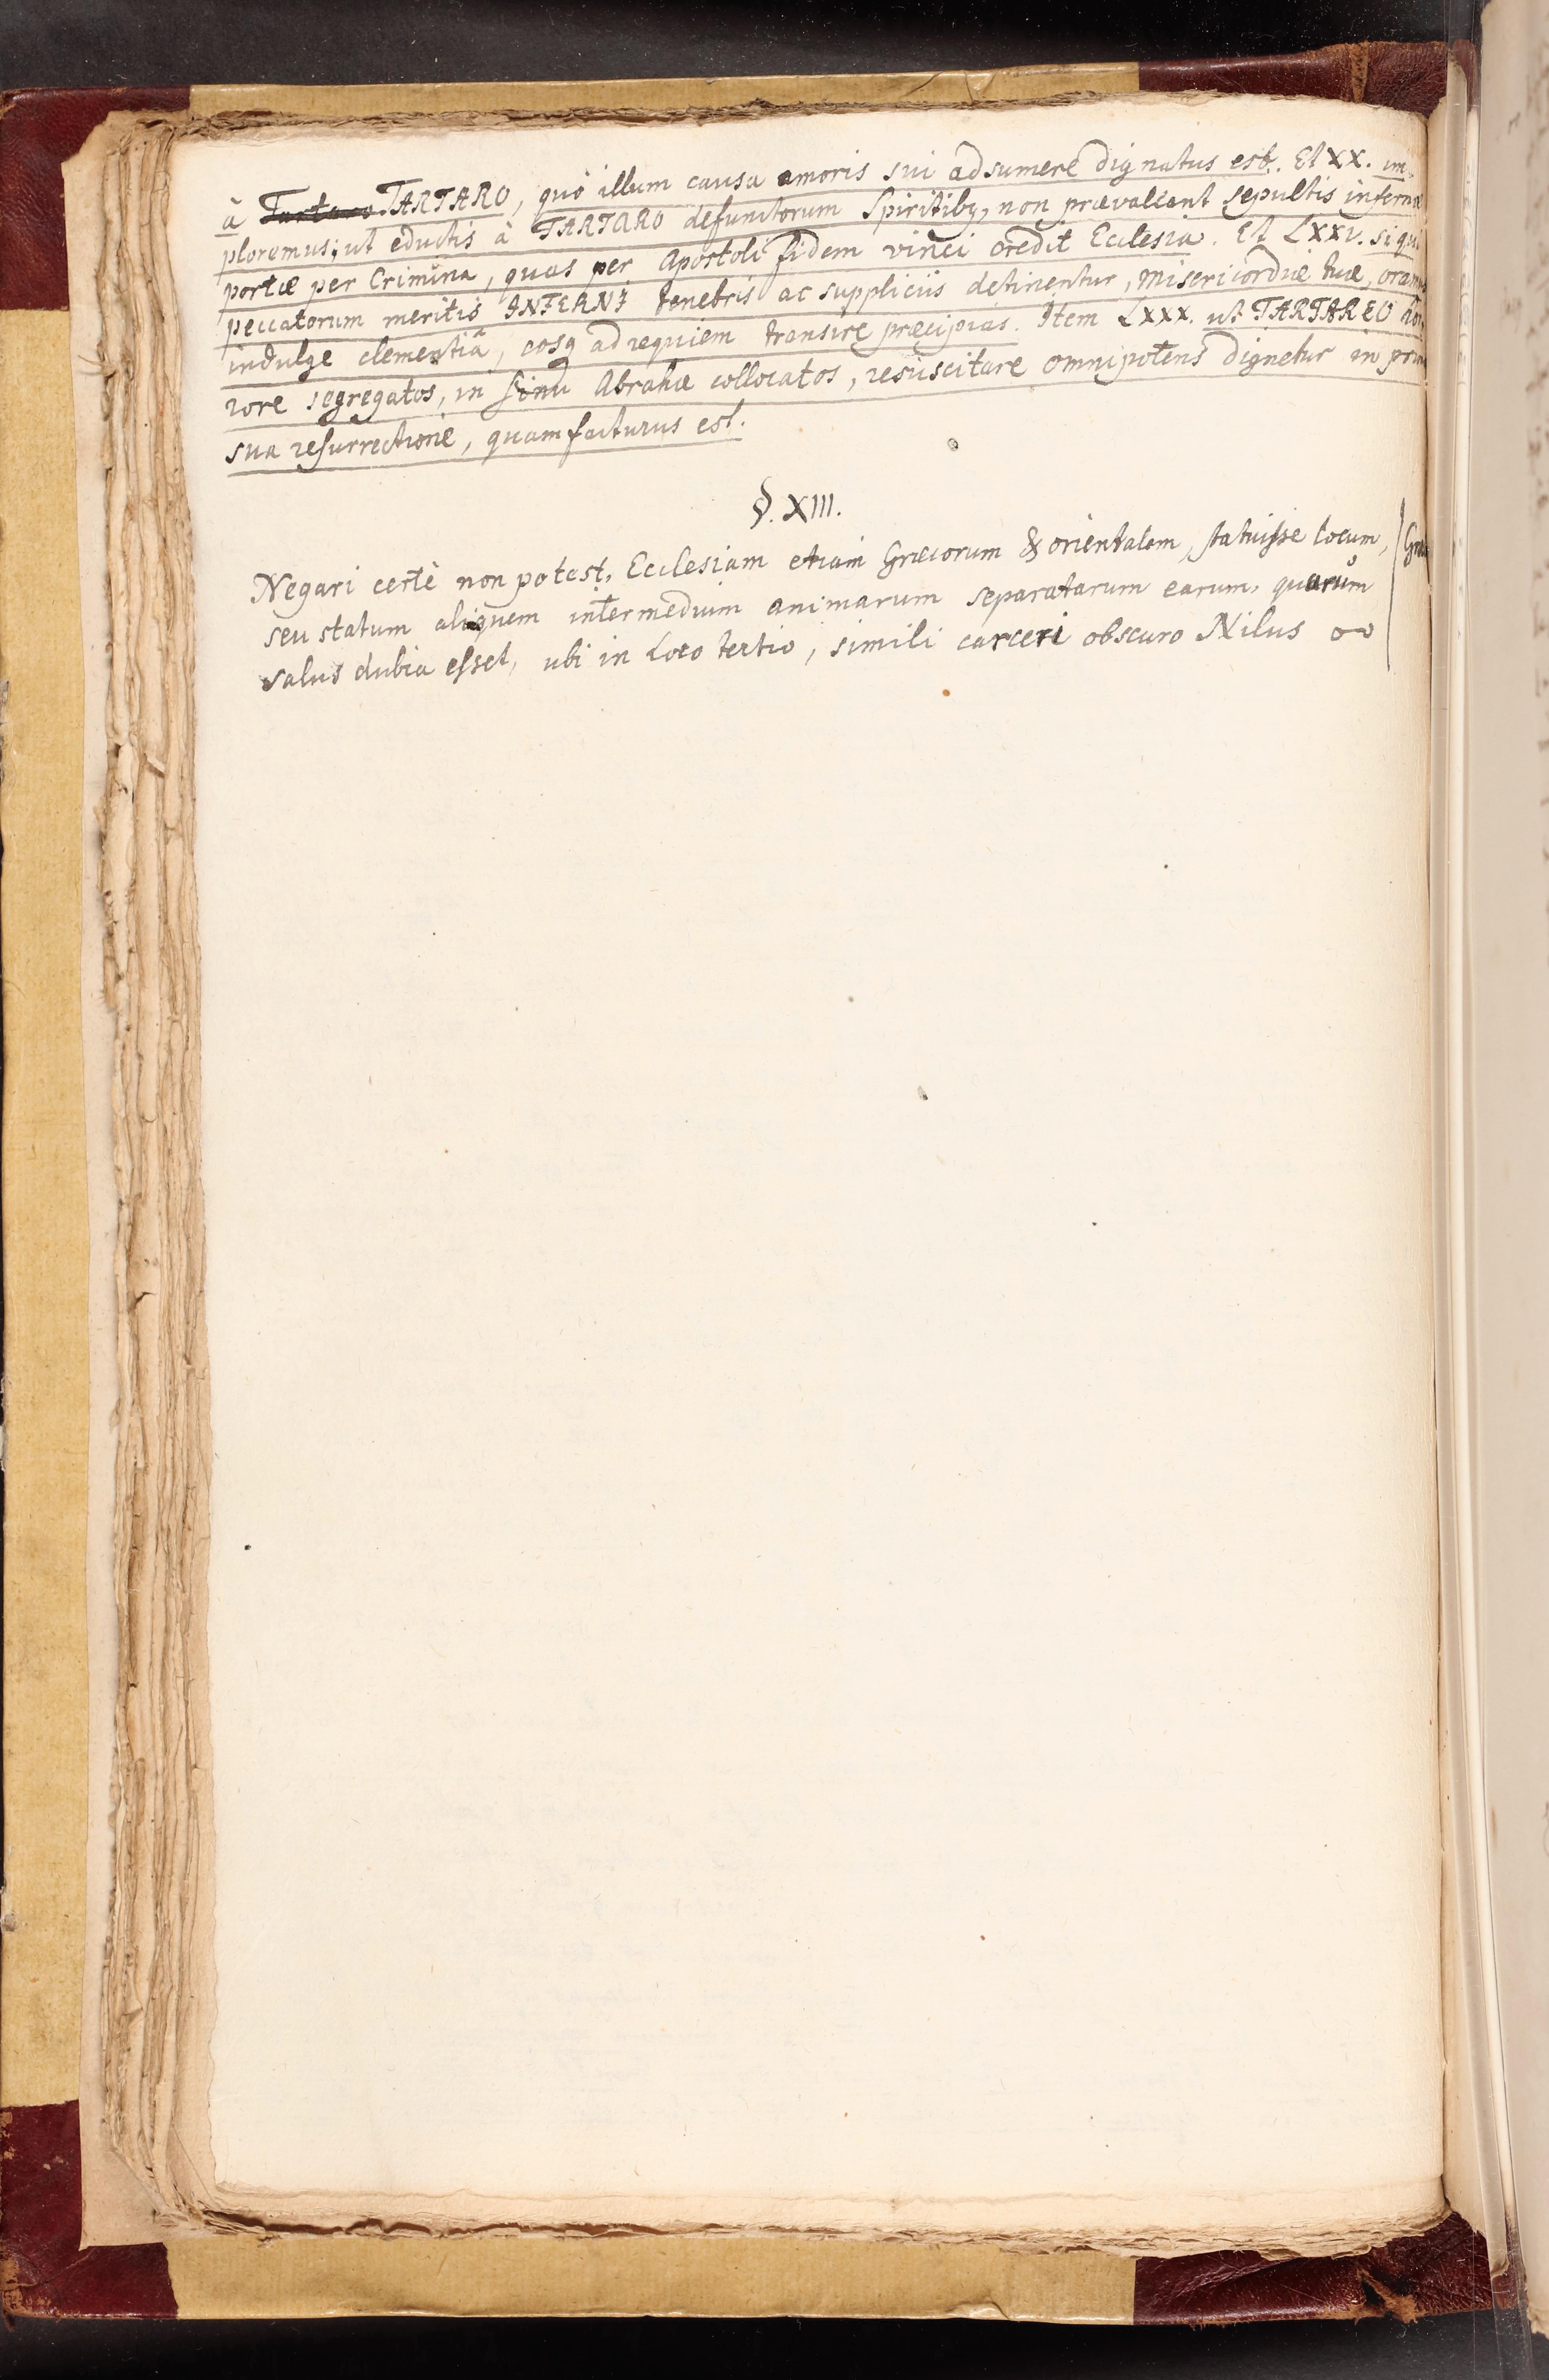 à Tartaro TARTARO, quô illum causa amoris sui adsumere dignatus est. Et XX. im-
ploremus, ut eductis à TARTARO defunctorum Spiritibq, non prævaleant sepultis infernæ
portæ per Crimina, quas per Apostoli fidem vinci credit Ecclesia. Et LXXI. si qui
peccatorum meritis INFERNI tenebris ac suppliciis detinentur, misericordiæ tuæ, oramus
indulge clementiâ, eosq ad requiem transire præcipias. Item LXXX. ut TARTAREO
rore segregatos, in sinu Abrahæ collocatos, resuscitare omnipotens dignetur in
sua resurrectione, quam facturus est.
§. XIII.
Negari certè non potest, Ecclesiam etiam Græcorum & orientalem, statuisse locum,
seu statum aliquem intermedium animarum separatarum earum, quarum
salus dubia esset, ubi in Loco tertio, simili carceri obscuro Nilus